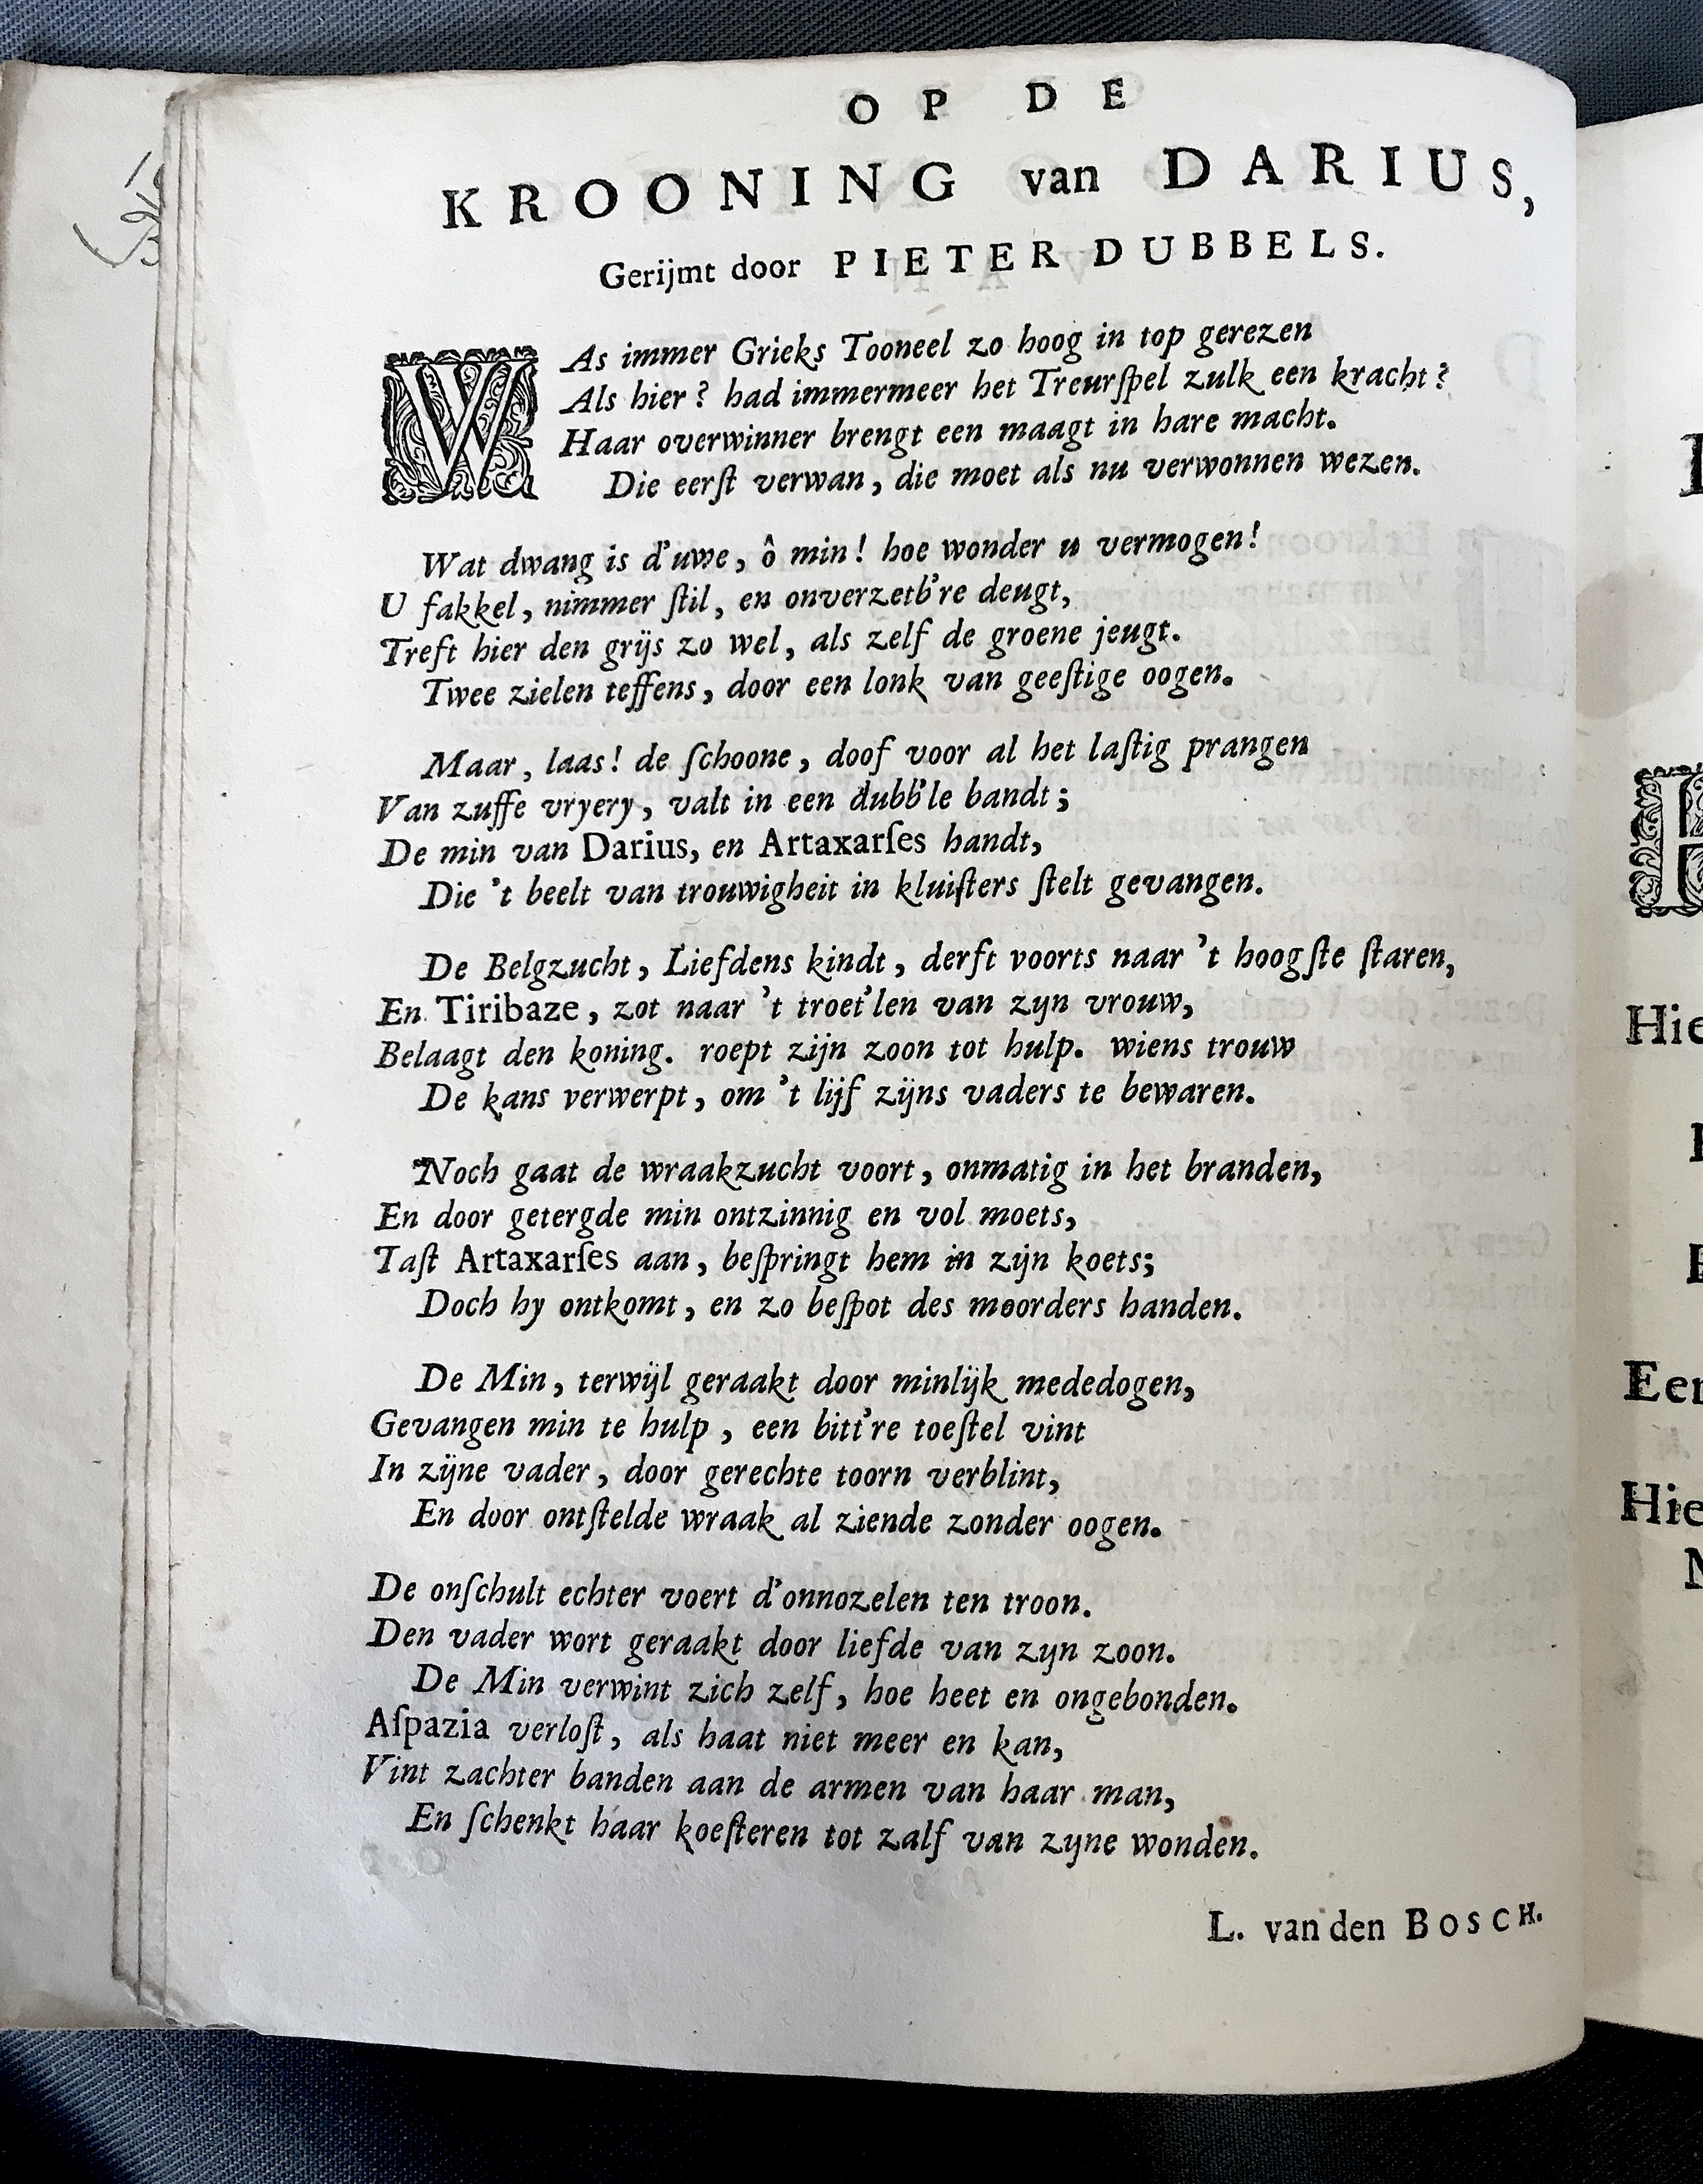 OP DE
KROONING van DARIUS,
Gerijmt door PIETER DUBBELS.
WAs immer Grieks Tooneel zo hoog in top gerezen
Als hier? had immermeer het Treurſpel zulk een kracht?
Haar overwinner brengt een maagt in hare macht.
Die eerſt verwan, die moet als nu verwonnen wezen.
Wat dwang is d'uwe, ô min! hoe wonder u vermogen!
U fakkel, nimmer ſtil, en onverzetb're deugt,
Treft hier den grijs zo wel, als zelf de groene jeugt.
Twee zielen teffens, door een lonk van geeſtige oogen.
Maar, laas! de ſchoone, doof voor al het laſtig prangen
Van zuffe vryery, valt in een dubb'le bandt;
De min van Darius, en Artaxarſes handt,
Die 't beelt van trouwigheit in kluiſters ſtelt gevangen.
De Belgzucht, Liefdens kindt, derft voorts naar 't hoogſte ſtaren,
En Tiribaze, zot naar 't troet'len van zyn vrouw,
Belaagt den koning. roept zijn zoon tot hulp. wiens trouw
De kans verwerpt, om 't lijf zijns vaders te bewaren.
Noch gaat de wraakzucht voort, onmatig in het branden,
En door getergde min ontzinnig en vol moets,
Taſt Artaxarſes aan, beſpringt hem in zijn koets;
Doch hy ontkomt, en zo beſpot des moorders handen.
De Min, terwijl geraakt door minlijk mededogen,
Gevangen min te hulp, een bitt're toeſtel vint
In zijne vader, door gerechte toorn verblint,
En door ontſtelde wraak al ziende zonder oogen.
De onſchult echter voert d'onnozelen ten troon.
Den vader wort geraakt door liefde van zyn zoon.
De Min verwint zich zelf, hoe heet en ongebonden.
Aſpazia verloſt, als haat niet meer en kan,
Vint zachter banden aan de armen van haar man,
En ſchenkt haar koeſteren tot zalf van zyne wonden.
L. van den BOSCH.
Hie
Eer
Hie